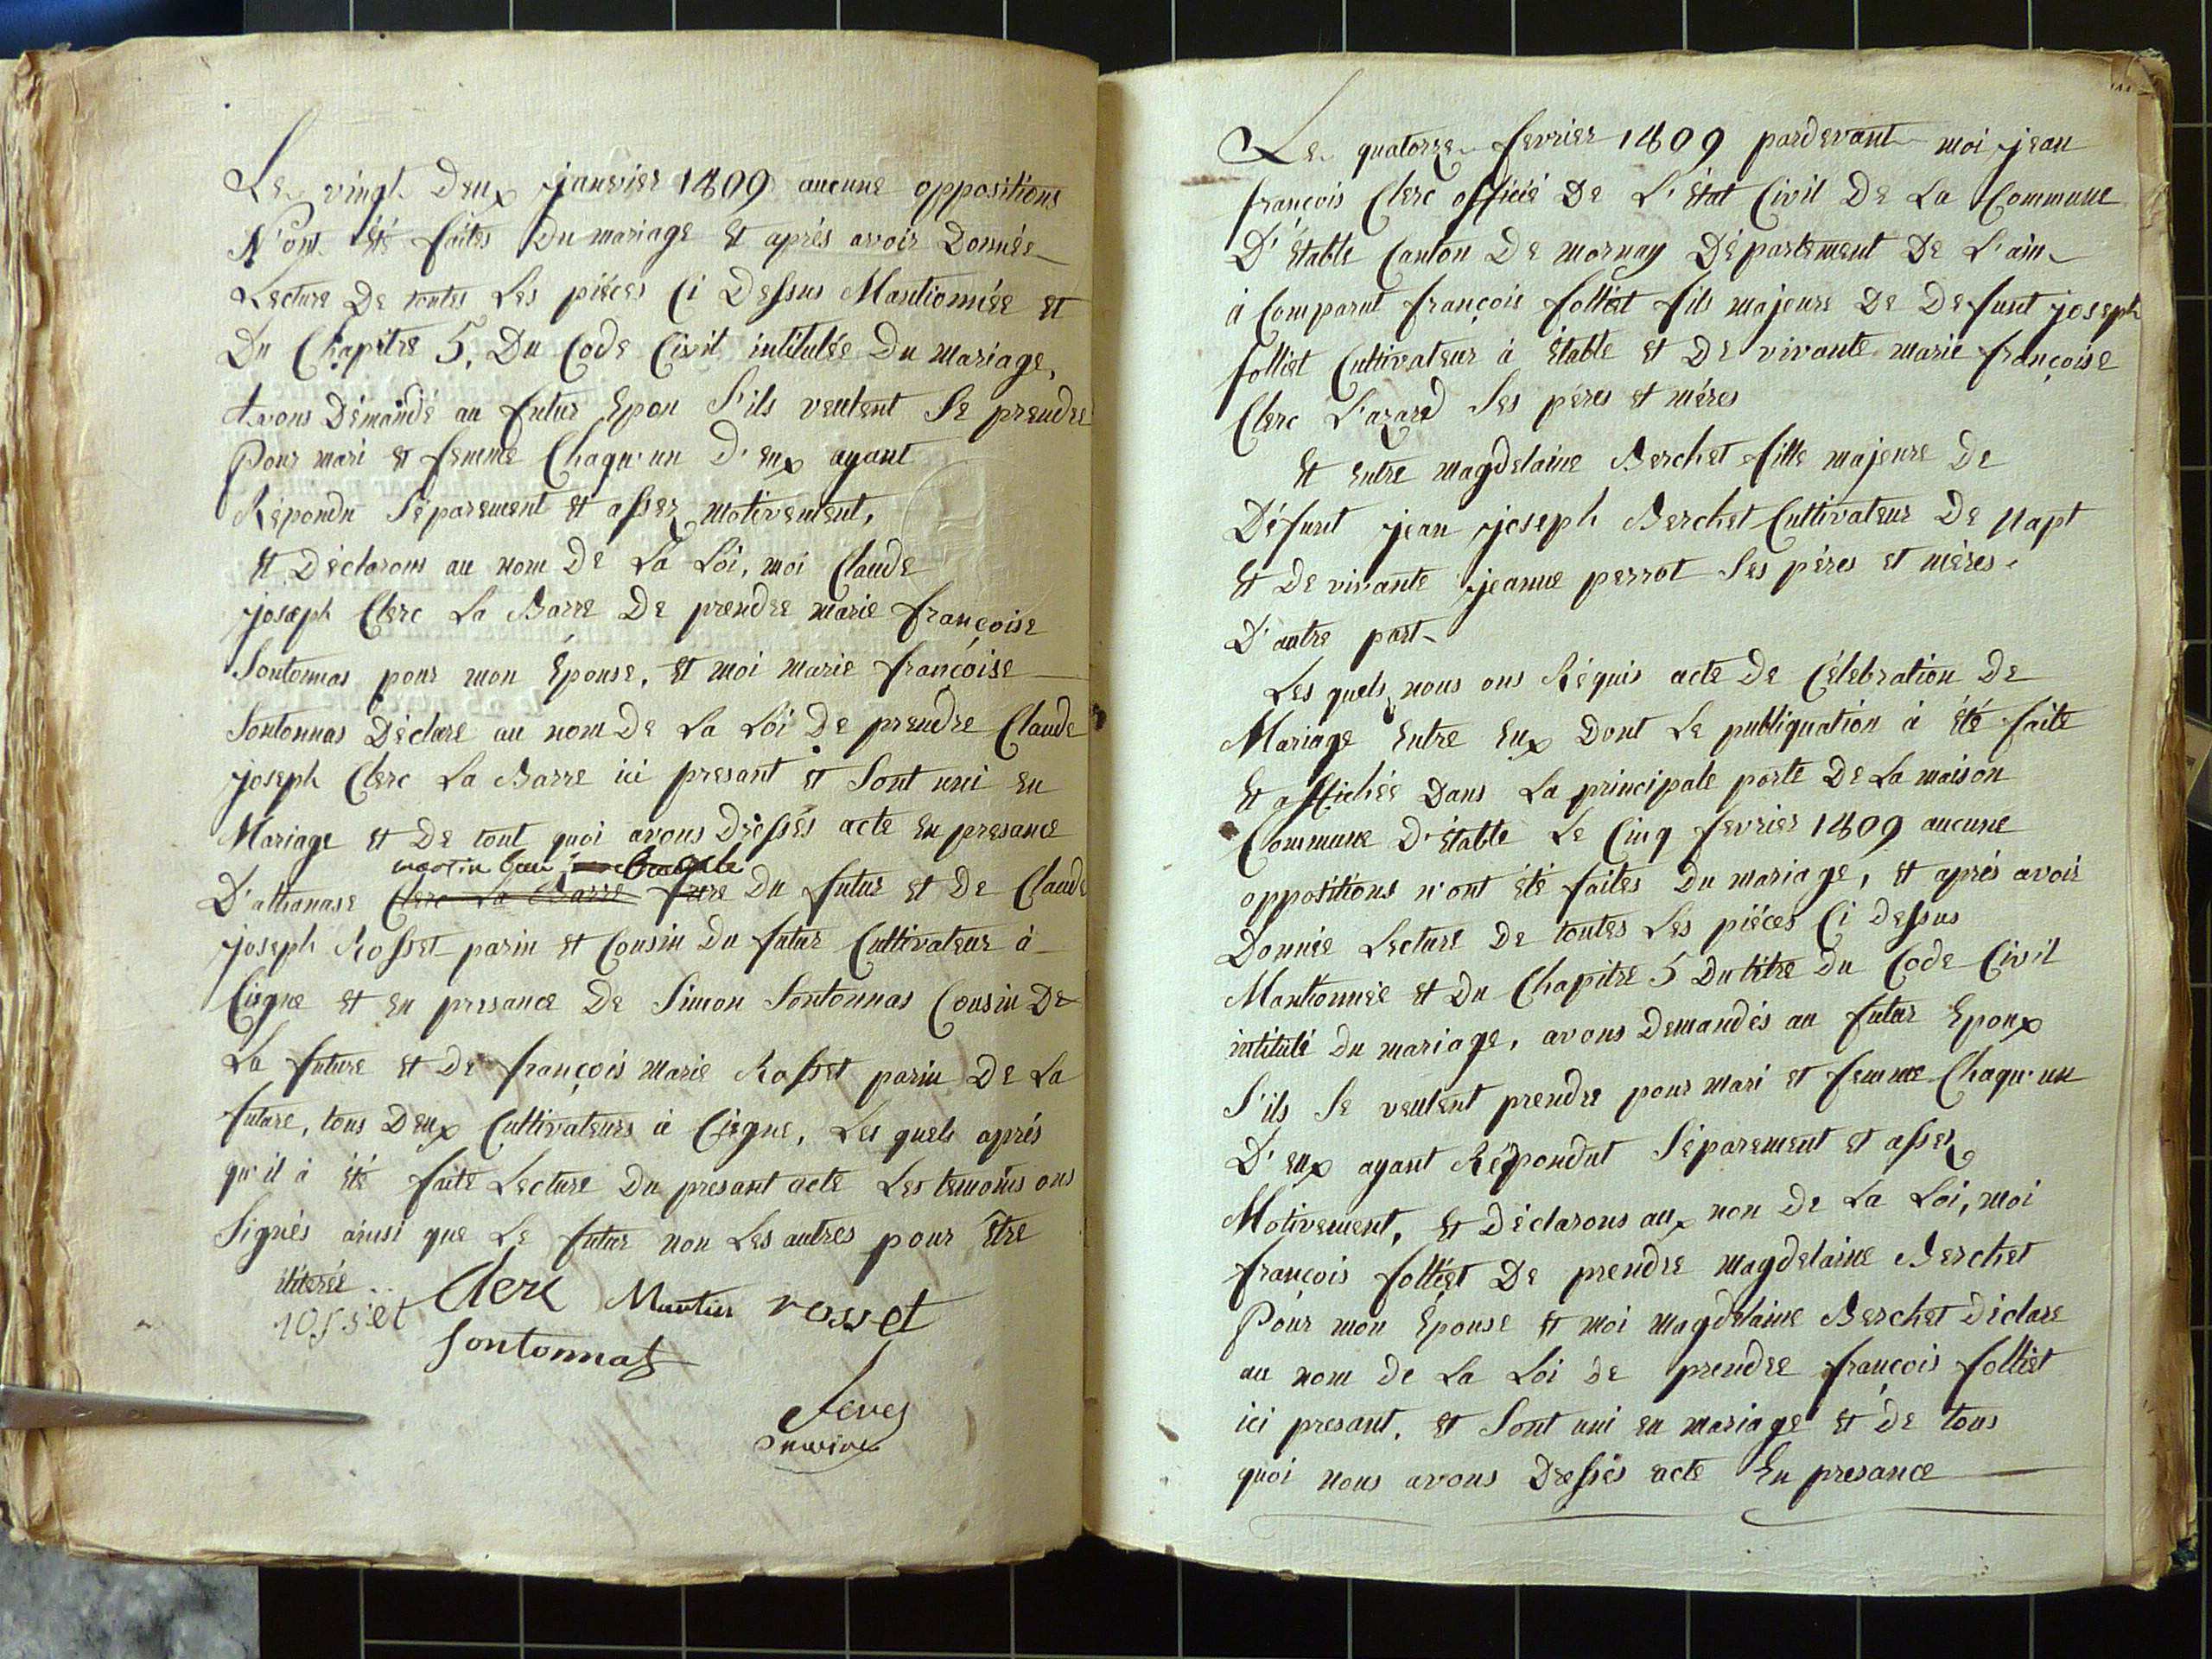 Le vingt Deux janvier 1809 aucune oppositions
N'ont été faites Du mariage et aprés avoir Donnée
Lecture De toutes Les piéces Ci Dessus Mantionnée et
Du Chapitre 5, Du Code Civil intitulée Du mariage,
Avons Démandé au futur Epou S'ils veulent Se prendre
Pour mari et femme Chaqu'un D'eux ayant
Répondu Séparement et assez motivement,
Et Déclarons au nom De La Loi, moi Claude
joseph Clerc La Barre De prendre marie françoise
Sontonnas pour mon Épouse, Et moi marie françoise
Sontonnas Déclare au nom De La Loi De prendre Claude
joseph Clerc La Barre ici presant et Sont uni en
Mariage et De tout quoi avons Dréssés acte en presance
martin
D'athanase Clerc La Barre frere Du futur et De Claude
joseph Rosset parin et Cousin Du futur Cultivateur à
Ciegne et en presance De Simon Sontonnas Cousin De
La future et De françois Marie Rosset parin De La
future, tous Deux Cultivateurs à Ciegne, Les quels aprés
qu'il à été faite Lecture Du presant acte Les temoins ons
Signés ainsi que Le futur non Les autres pour être
iliterée
rosset Clerc Martin rosset
Sontonnas
Le quatorze fevrier 1809 pardevant moi jean
françois Clerc officié De L'état Civil De La Commune
D'Étable Canton De mornay Département De L'ain
à Comparut françois folliet fils majeure De Defunt joseph
folliet Cultivateur à Étable et De vivante marie françoise
Clerc L'azard Ses péres et méres
Et entre magdelaine Berchet fille majeure De
Défunt jean joseph Berchet Cultivateur De Napt
Et De vivante jeanne perrot Ses péres et méres
D'autre part
Les quels nous ons Réquis acte De Célebration De
Mariage Entre Eux Dont Le publiquation à été faite
Et affichée Dans La principale porte De La maison
Commune D'étable Le Cinq fevrier 1809 aucune
oppositions n'ont été faites Du mariage, et aprés avoir
Donnée Lecture De toutes Les piéces Ci Dessus
Mantionnée et Du Chapitre 5 Du titre Du Code Civil
intitulé Du mariage, avons Demandés au futur Epoux
S'ils Se veulent prendre pour mari et femme Chaqu'un
D'eux ayant Répondut Séparement et assez
Motivement, Et Déclarons aux non De La Loi, moi
françois folliet De prendre magdelaine Berchet
Pour mon Épouse et moi magdelaine Berchet Déclare
au nom De La Loi De prendre françois folliet
ici presant, et Sont uni en mariage et De tous
quoi nous avons Dressés acte En presance